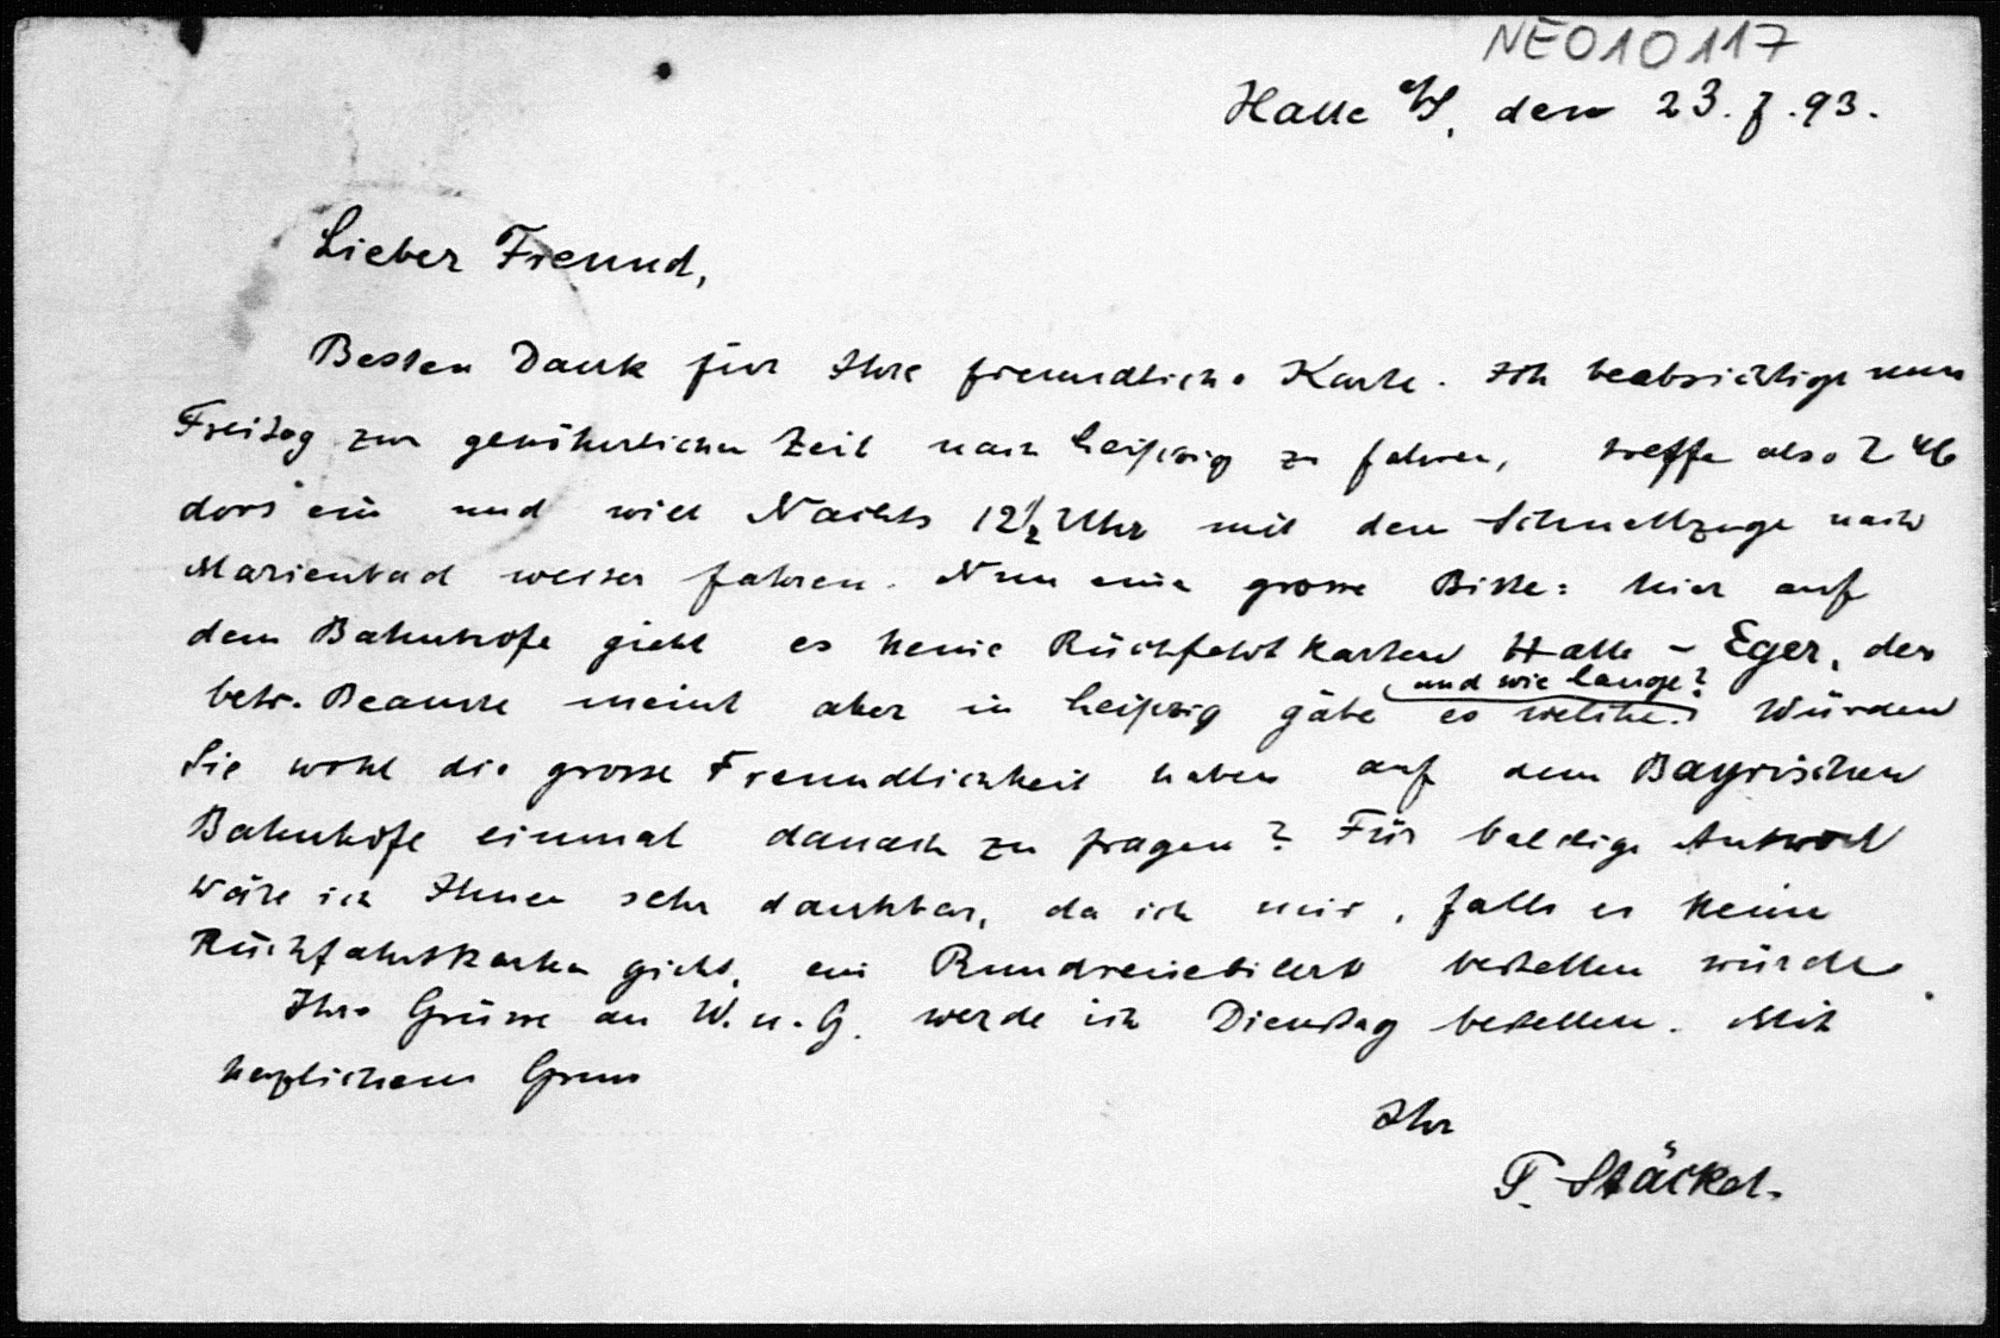 NE010117
Halle a/S, den 23. 7. 93.
Lieber Freund,
Besten Dank für Ihre freundliche Karte. Ich beabsichtige nun
Freitag zur gewöhnlichen Zeit nach Leipzig zu fahren, treffe also 2 46
dort ein und will Nachts 12 1/2 Uhr mit dem Schnellzuge nach
Marienbad weiter fahren. Nun eine grosse Bitte: hier auf
dem Bahnhofe giebt es keine Rückfahrtkarten Halle - Eger, der
und wie lange?
betr. Beamte meint aber in Leipzig gäbe es welche. Würden
Sie wohl die grosse Freundlichkeit haben auf dem Bayrischen
Bahnhofe einmal danach zu fragen? Für baldige Antwort
wäre ich Ihnen sehr dankbar, da ich mir, falls es keine
Rückfahrtkarten giebt, ein Rundreisebillet bestellen würde
Ihre Grüsse an W. u. G. werde ich Dienstag bestellen. Mit
herzlichem Gruss
Ihr
P. Stäckel.